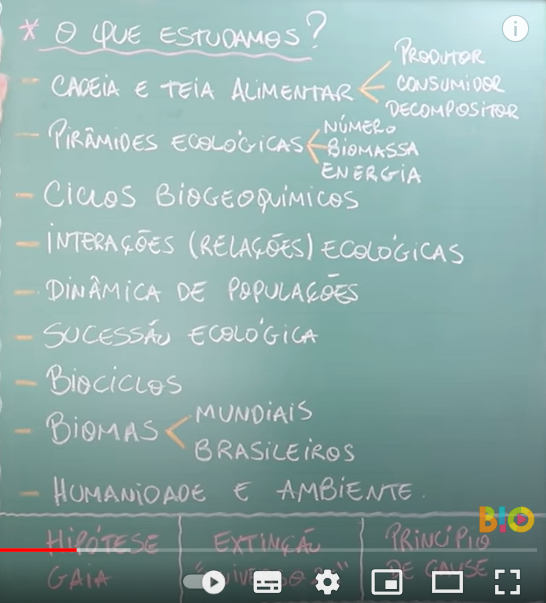 * O QUE ESTUDAMOS?
- CADEIA E TEIA ALIMENTAR < PRODUTOR
CONSUMIDOR
DECOMPOSITOR
- PIRÂMIDES ECOLÓGICAS < NÚMERO
BIOMASSA
ENERGIA
- CICLOS BIOGEOQUÍMICOS
- INTERAÇÕES (RELAÇÕES) ECOLÓGICAS
- DINÂMICA DE POPULAÇÕES
- SUCESSÃO ECOLÓGICA
- BIOCICLOS
- BIOMAS < MUNDIAIS
BRASILEIROS
- HUMANIDADE E AMBIENTE.
BIO
HIPÓTESE
GAIA
EXTINÇÃO
PRINCÍPIO
DE GAUSE